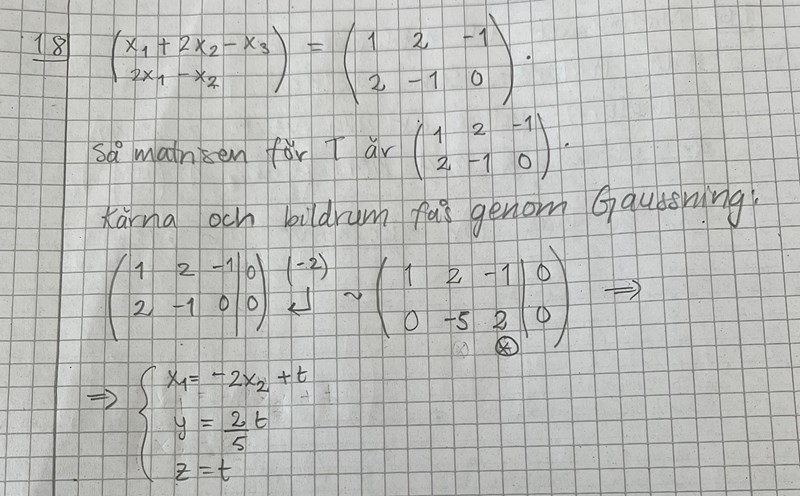 18 (x₁ + 2x₂ - x₃ / 2x₁ - x₂) = (1 2 -1 / 2 -1 0).
Så matrisen för T är (1 2 -1 / 2 -1 0).
Kärna och bildrum fås genom Gaussning:
(1 2 -1 | 0 / 2 -1 0 | 0) (-2) ↲ ~ (1 2 -1 | 0 / 0 -5 2 | 0) ⇒
⇒ { x₁ = -2x₂ + t
y = 2/5 t
z = t